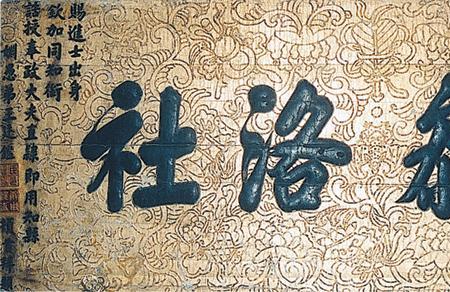 洛社
賜進士出身
欽加同知銜
誥授奉政大夫直隸即用知縣
姻愚弟王